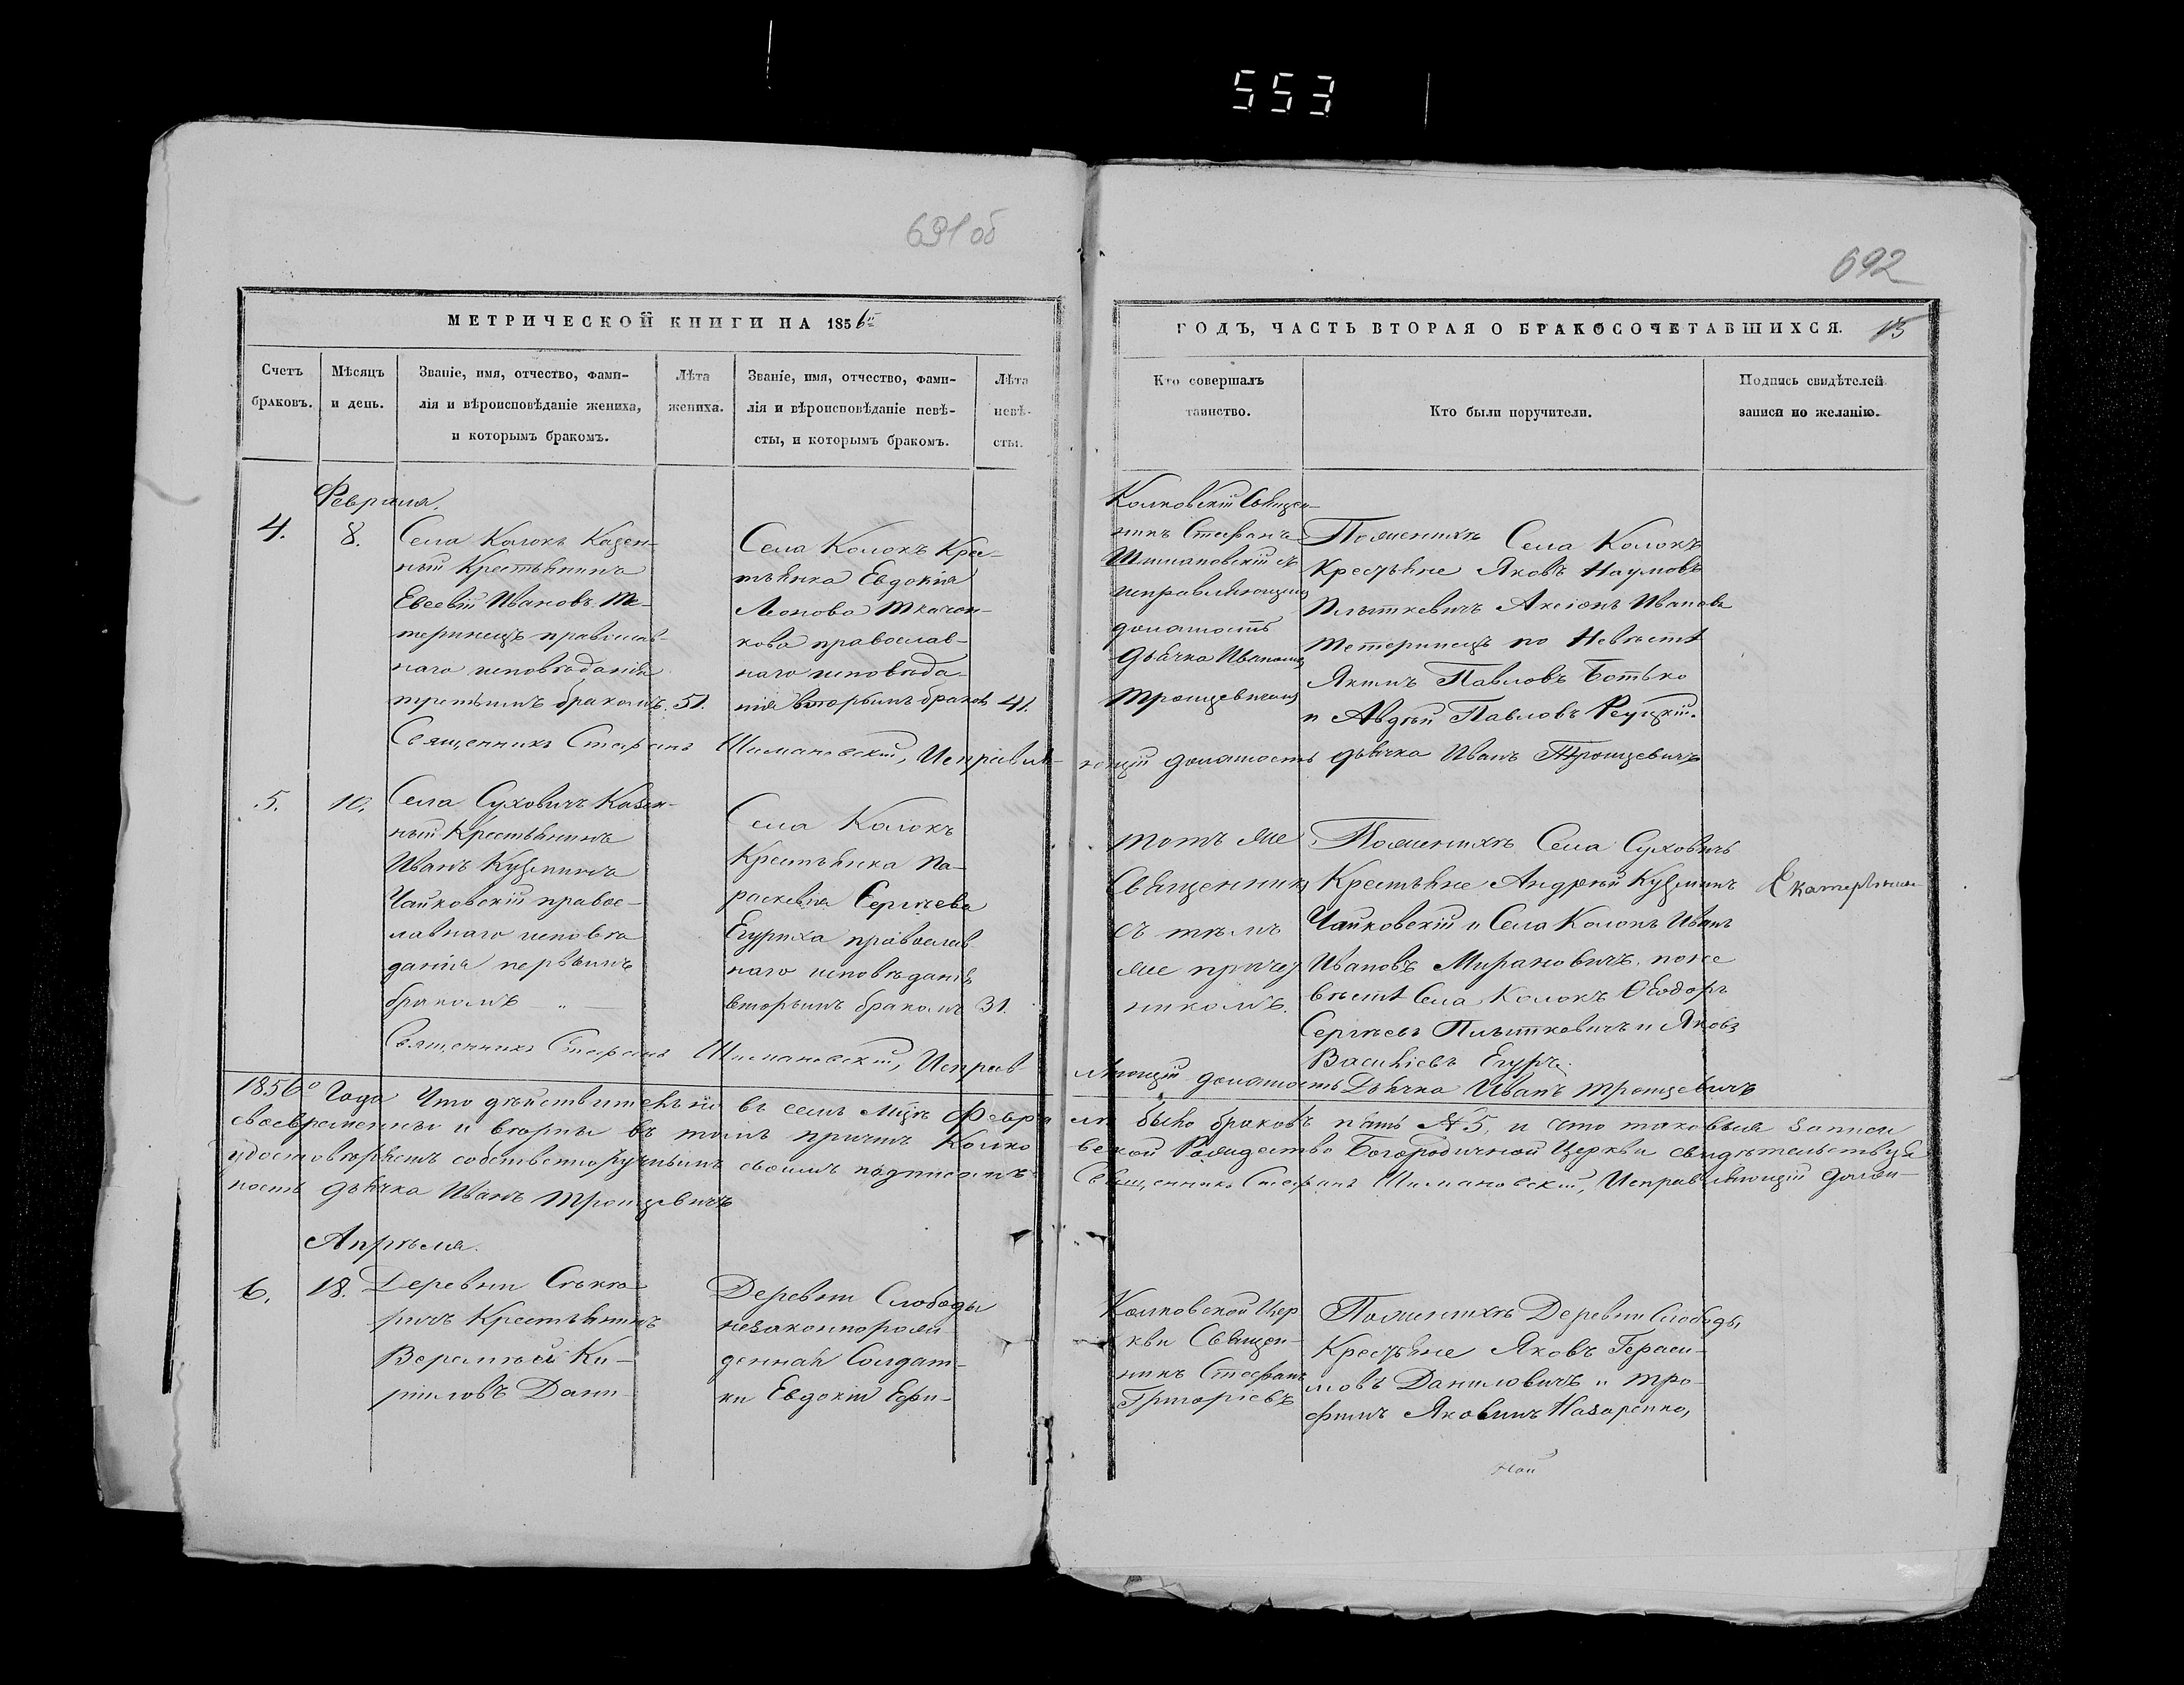 553
691 об
692
МЕТРИЧЕСКОЙ КНИГИ НА 1856й
ГОДЪ, ЧАСТЬ ВТОРАЯ О БРАКОСОЧЕТАВШИХСЯ.
Счетъ
браковъ.
Мѣсяцъ
и день.
Званіе, имя, отчество, фами-
лія и вѣроисповѣданіе жениха,
и которымъ бракомъ.
Лѣта
жениха.
Званіе, имя, отчество, фами-
лія и вѣроисповѣданіе невѣ-
сты, и которымъ бракомъ.
Лѣта
невѣ-
сты.
Кто совершалъ
таинство.
Кто были поручители.
Подпись свидѣтелей
записи по желанію.
Февраля.
4.
8.
Села Колокъ Казен-
ный Крестьянинъ
Евсевій Ивановъ Те-
теринецъ православ-
наго исповѣданія
третьимъ бракомъ.
51.
Села Колокъ Крес-
тьянка Евдокія
Леонова Ткачен-
кова православ-
наго исповѣда-
нія вторымъ браком
41.
Колковскій Священ-
никъ Стефанъ
Шимановскій съ
исправляющимъ
должность
Дьячка Иваномъ
Троицевичемъ
Поженихѣ Села Колокъ
Крестьяне Яковъ Наумовъ
Плыткевичъ Аксіонъ Ивановъ
Тетеринецъ по Невѣстѣ
Якимъ Павловъ Ботько
и Авдѣй Павловъ Реуцкій.
Священникъ Стефанъ Шимановскій, Исправля-
ющій должность дьячка Иванъ Троицевичъ
5.
10.
Села Суховичъ Казен-
ный Крестьянинъ
Иванъ Кузминъ
Чайковскій правос-
лавнаго исповѣ
данія первымъ
бракомъ
Села Колокъ
Крестьянка Па-
раскевія Сергѣева
Егуриха православ
наго исповѣданія
вторымъ бракомъ
31.
тотъ же
Священникъ
съ тѣмъ
же причет
никомъ.
Поженихѣ Села Суховичъ
Крестьяне Андрей Кузминъ
Чайковскій и Села Колокъ Иванъ
Ивановъ Мирановичъ, поне
вѣстѣ Села Колокъ Ѳеодоръ
Сергѣевъ Плыткевичъ и Яковъ
Василіевъ Егуръ.
Священникъ Стефанъ Шимановскій, Исправ
ляющій должность Дьячка Иванъ Троицевичъ
1856о Года Что дѣйствительно въ семъ мцѣ Февра
лѣ было браковъ пять № 5, и что таковыя записи
своевременны и вѣрны въ томъ причтъ Колко
вской Рождество Богородичной Церкви свидѣтельствуя
удостовѣряетъ собственноручнымъ своимъ подписомъ
Священникъ Стефанъ Шимановскій, Исправляющій долж-
ность дьячка Иванъ Троицевичъ
Апрѣля.
6.
18.
Деревни Сѣкѣ
ричъ Крестьянинъ
Веремѣй Ки-
риловъ Дани-
Деревни Слободы
незаконнорож
денная Солдат-
ки Евдокіи Ефи-
Колковской Цер
кви Священ-
никъ Стефанъ
Григоріевъ
Поженихѣ Деревни Слободы
Крестьяне Яковъ Гераси-
мовъ Даниловичъ и Тро-
фимъ Яковинъ Назаренко,